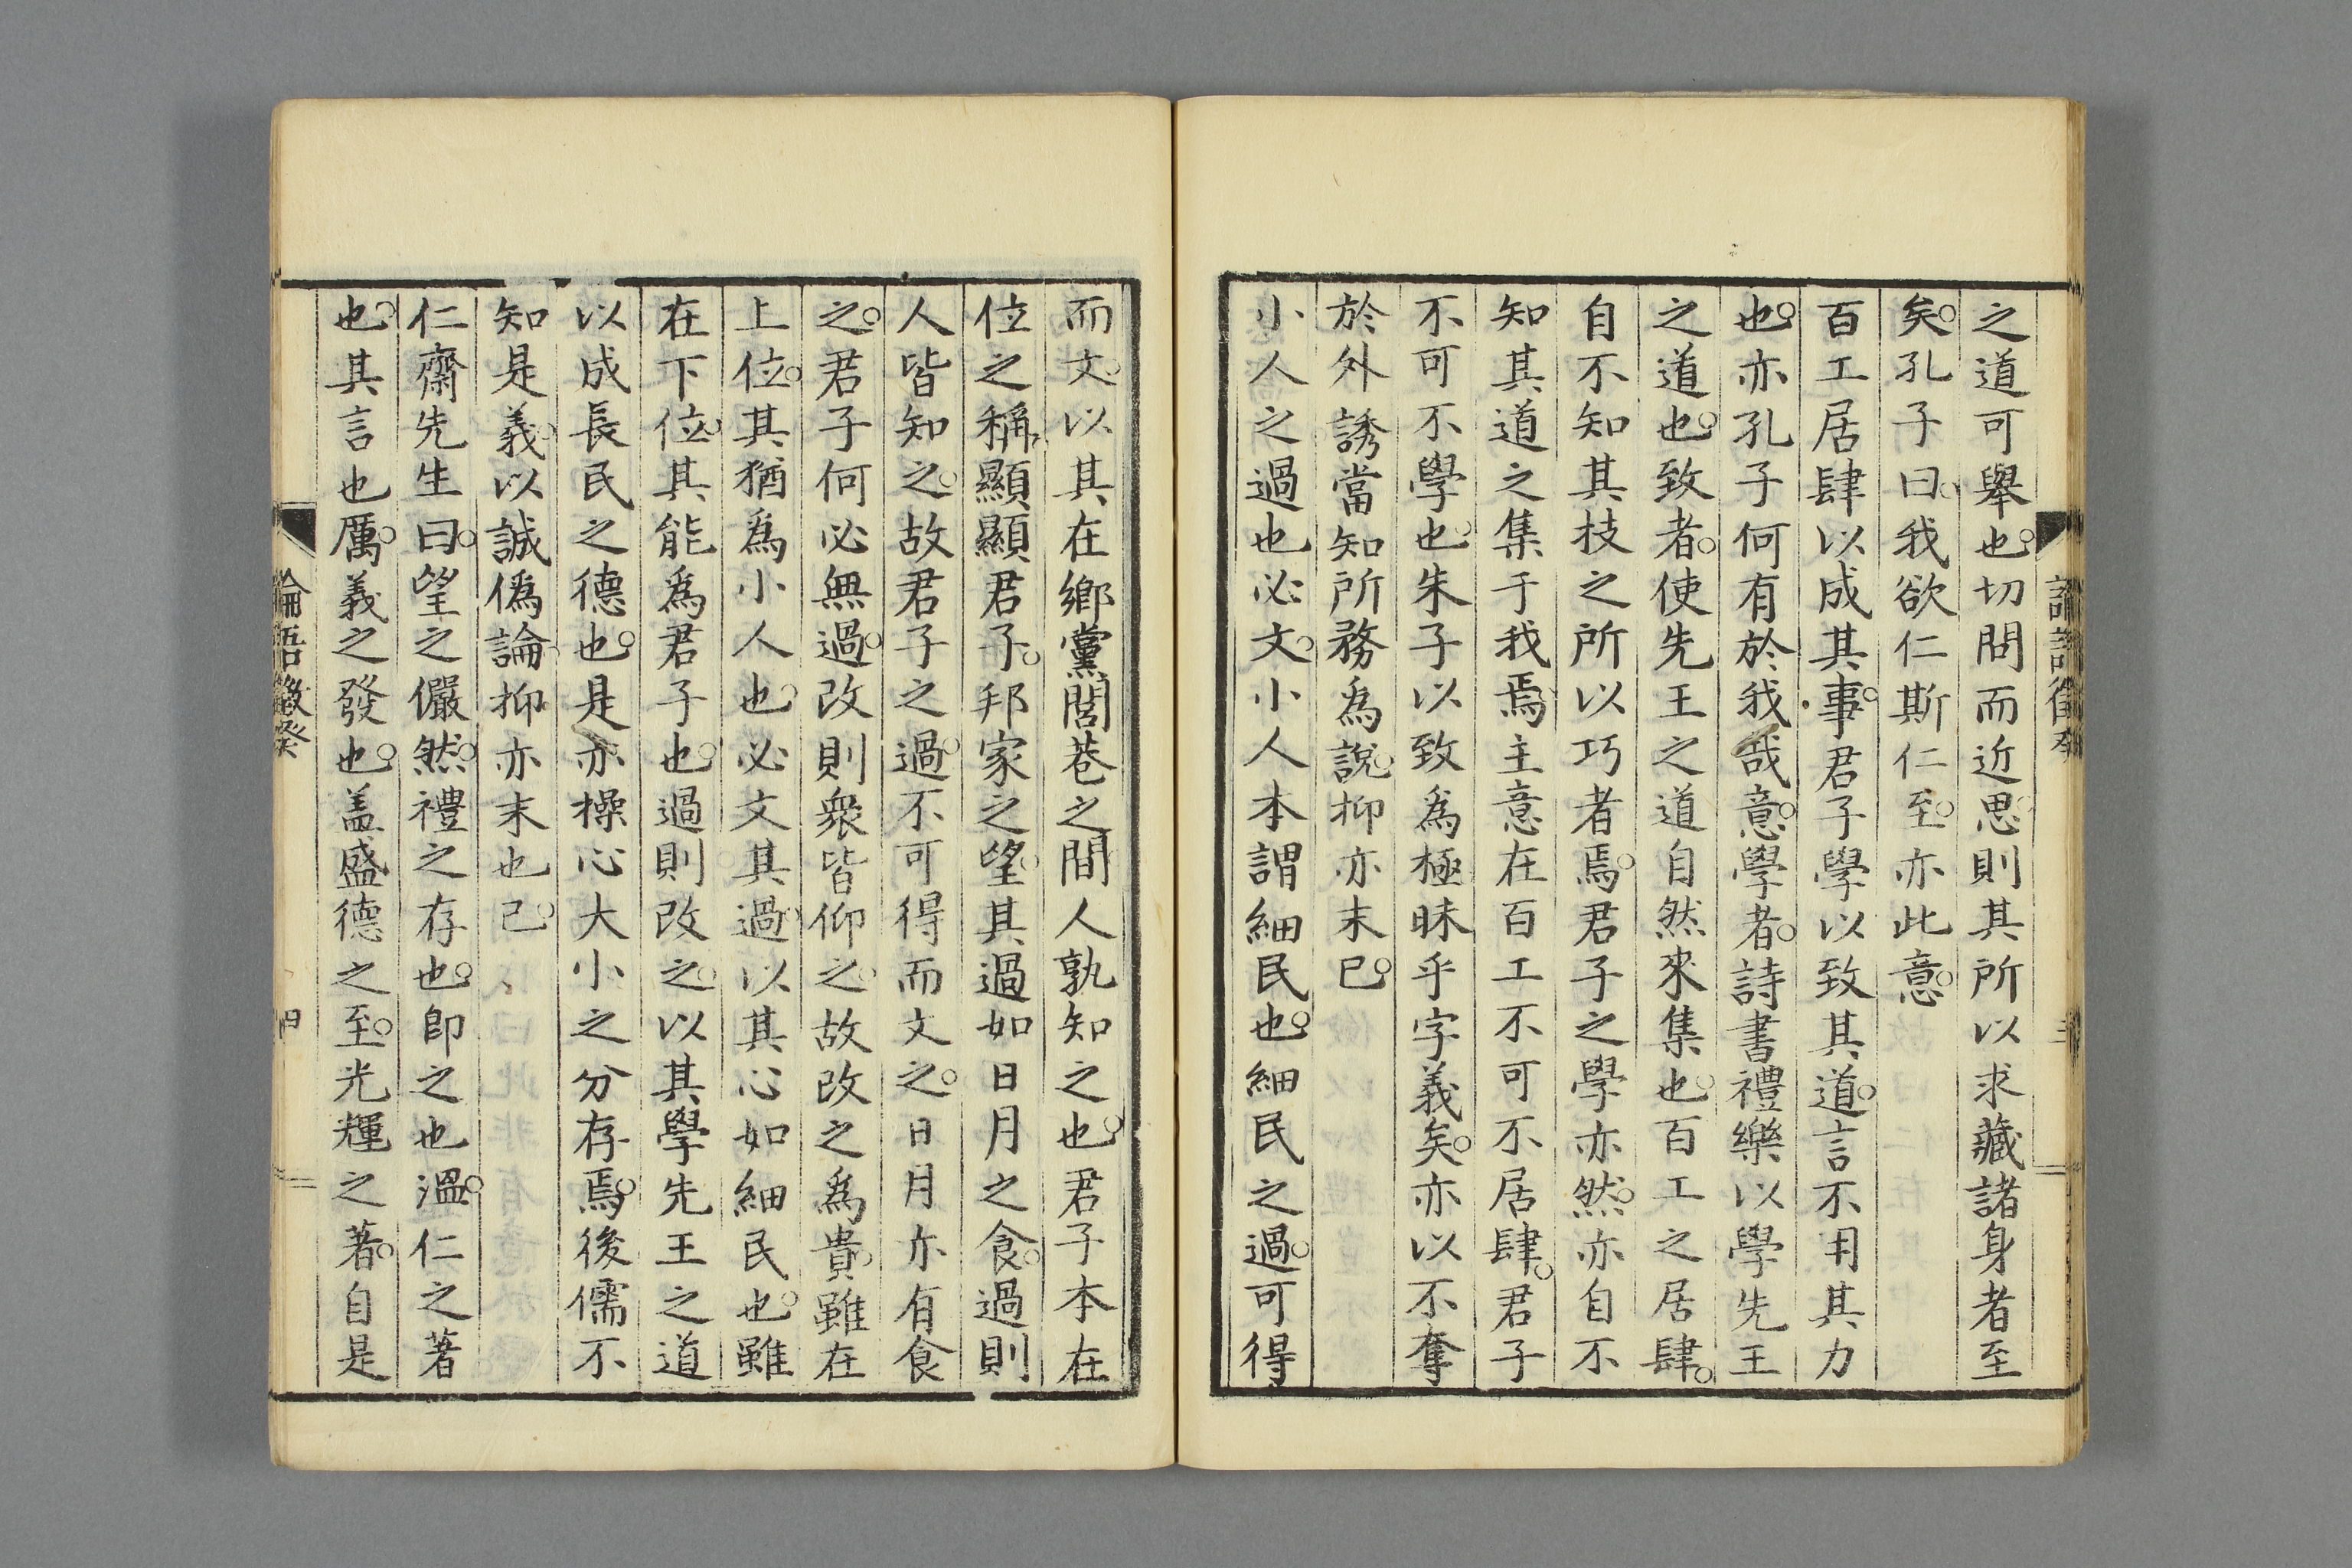 之道可舉也。切問而近思。則其所以求藏諸身者至
矣。孔子曰。我欲仁斯仁至。亦此意。
百工居肆以成其事。君子學以致其道。言不用其力
也。亦孔子何有於我哉意。學者。詩書禮樂以學先王
之道也。致者。使先王之道自然來集也。百工之居肆。
自不知其技之所以巧者焉。君子之學亦然。亦自不
知其道之集于我焉。主意在百工不可不居肆。君子
不可不學也。朱子以致爲極昧乎字義矣。亦以不奪
於外誘當知所務爲說。抑亦末已。
小人之過也必文。小人本謂細民也。細民之過。可得
而文。以其在鄉黨閭巷之間人孰知之也。君子本在
位之稱。顯顯君子。邦家之望。其過如日月之食。過則
人皆知之。故君子之過。不可得而文之。日月亦有食
之。君子何必無過。改則衆皆仰之。故改之爲貴。雖在
上位。其猶爲小人也。必文其過。以其心如細民也。雖
在下位。其能爲君子也。過則改之。以其學先王之道
以成長民之德也。是亦操心大小之分存焉。後儒不
知是義。以誠僞論。抑亦末也已。
仁齋先生曰。望之儼然。禮之存也。卽之也溫。仁之著
也。其言也厲。義之發也。盖盛德之至。光輝之著。自是
論語徵癸